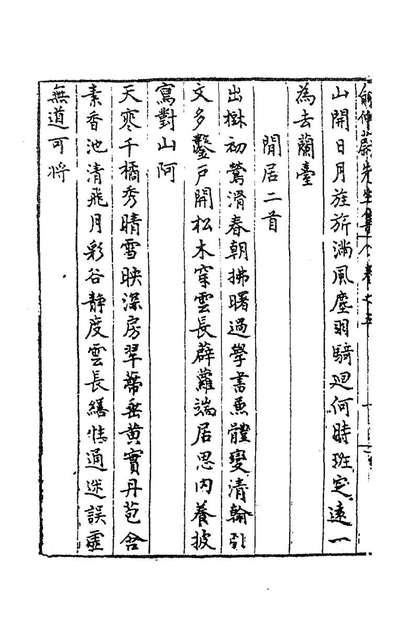 俞仲蔚先生集卷之五
山開日月旌旂滿風塵羽騎迴何時班定遠一
為去蘭臺
閒居二首
出樹初鶯滑春朝拂曙過學書魚體變清翰引
文多鑿戶開松木穿雲長薜蘿端居思內養披
寫對山阿
天寒千橘秀晴雪映深房翠蔕垂黄實丹苞含
素香池清飛月彩谷靜度雲長繕性通迷誤虛
無道可將